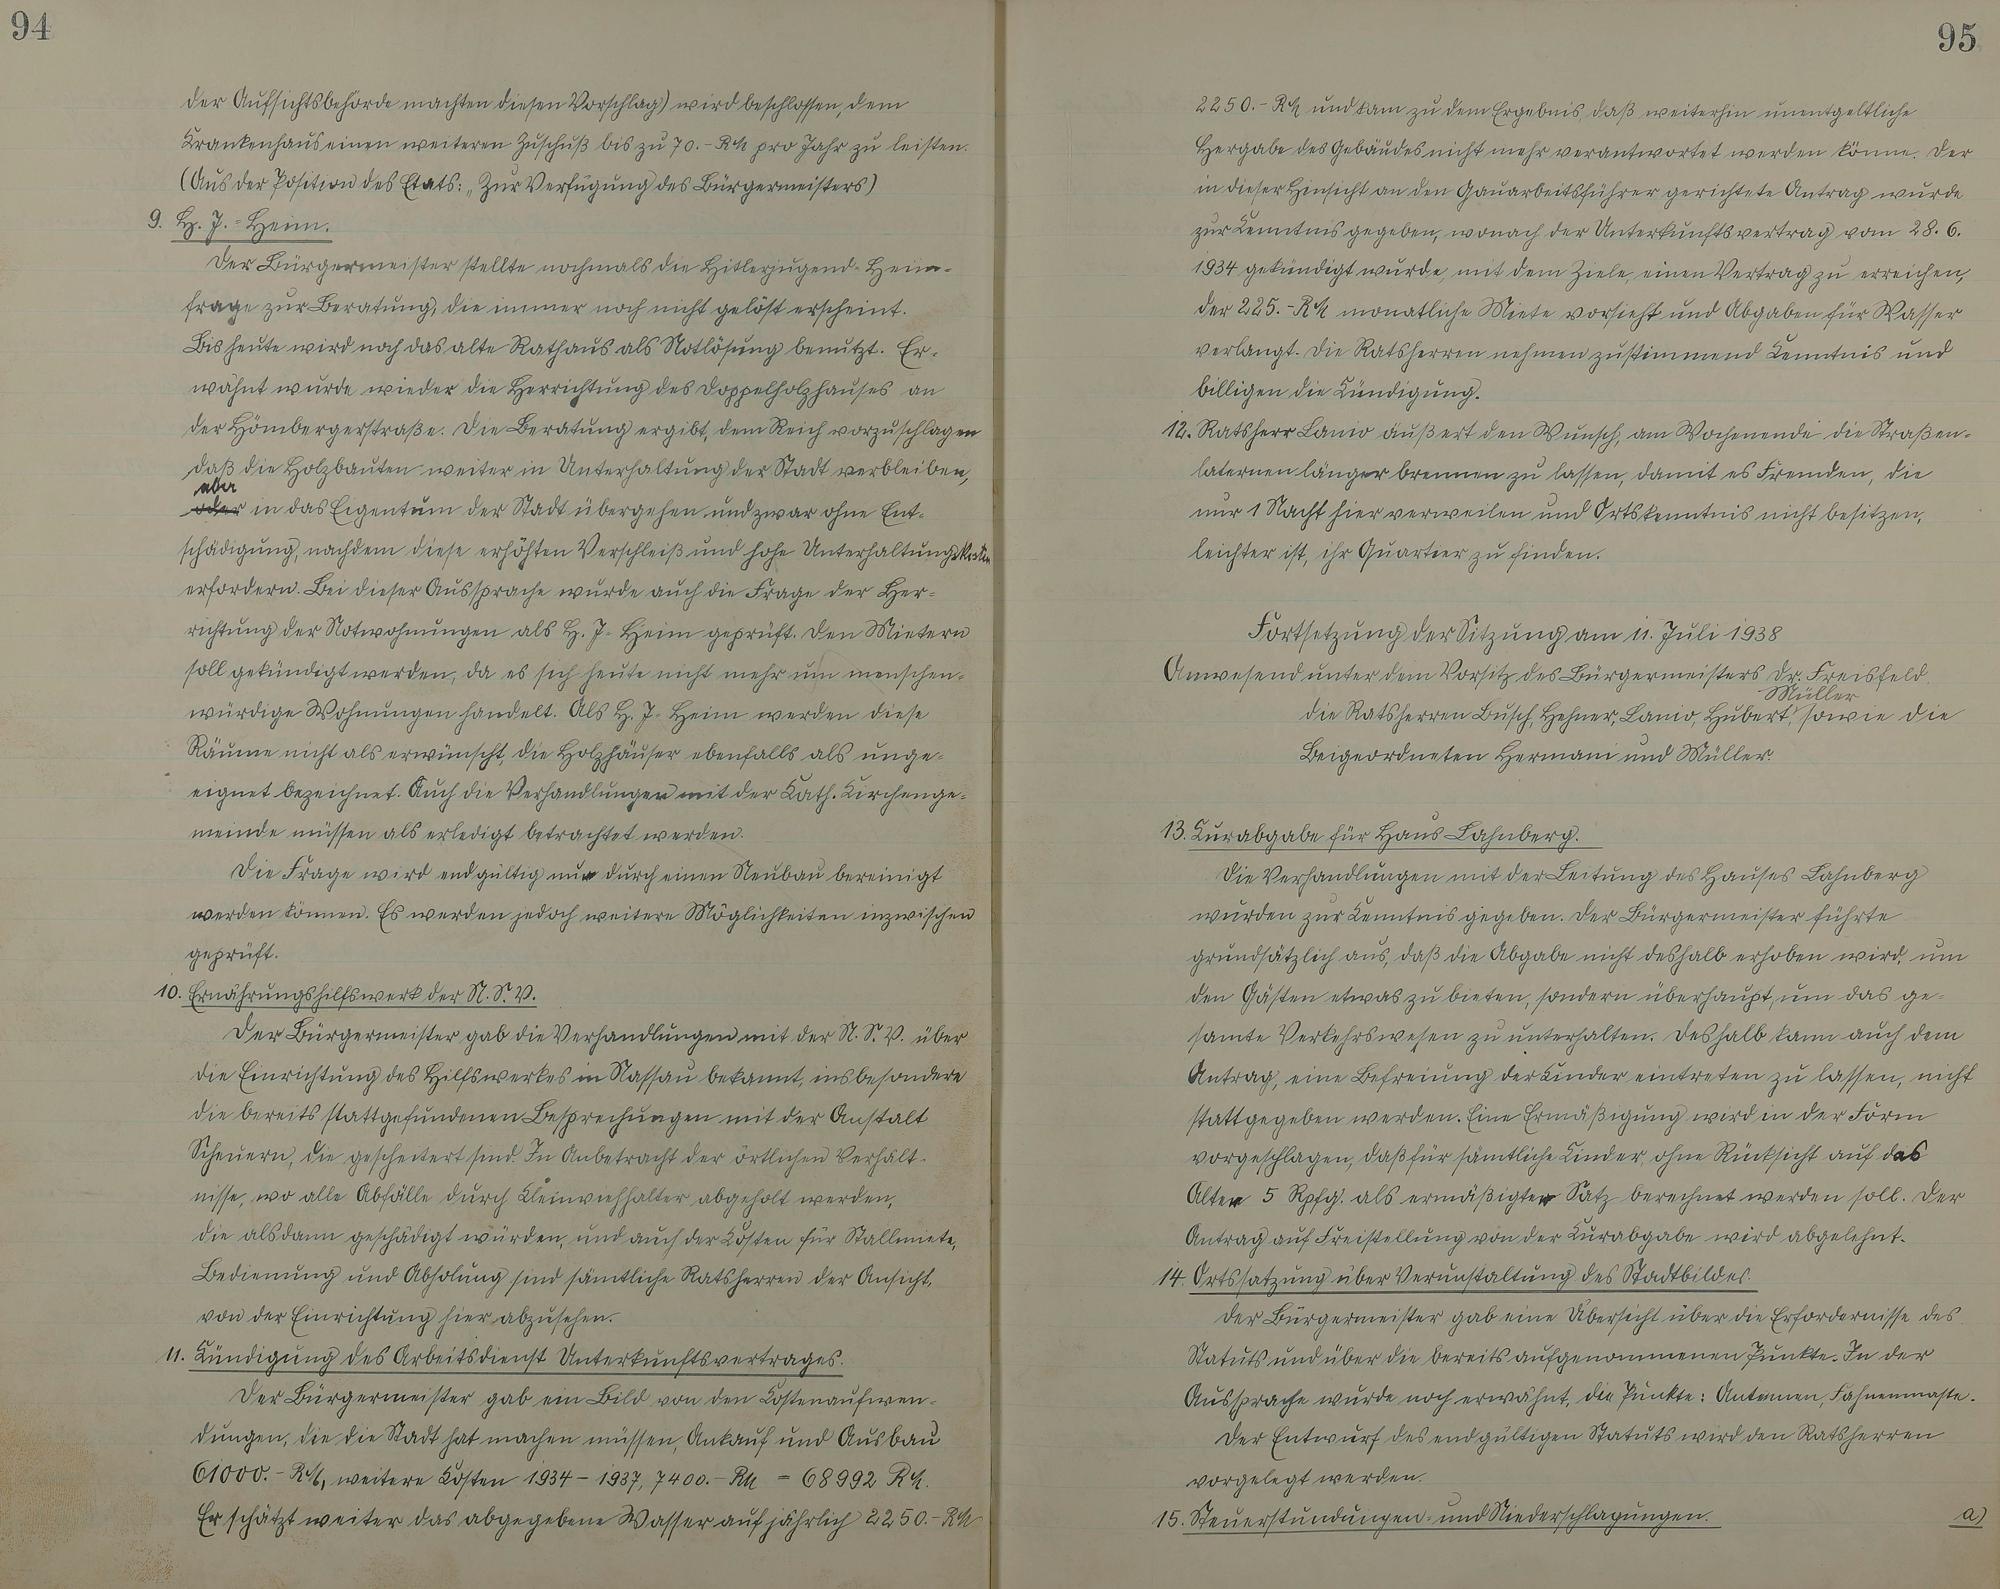 94
der Aufsichtsbehörde machten diesen Vorschlag) wird beschlossen, dem
Krankenhaus einen weiteren Zuschuß bis zu 70.- RM pro Jahr zu leisten.
(Aus der Position des Etats: „Zur Verfügung des Bürgermeisters)
9. H. J. = Heim.
Der Bürgermeister stellte nochmals die Hitlerjugend-Heim-
frage zur Beratung, die immer noch nicht gelöst erscheint.
Bis heute wird noch das alte Rathaus als Notlösung benutzt. Er-
wähnt wurde wieder die Herrichtung des Doppelholzhauses an
der Hömbergerstraße. Die Beratung ergibt, dem Reich vorzuschlagen
daß die Holzbauten weiter in Unterhaltung der Stadt verbleiben,
aber
oder in das Eigentum der Stadt übergehen und zwar ohne Ent-
schädigung, nachdem diese erhöhten Verschleiß und hohe Unterhaltungskosten
erfordern. Bei dieser Aussprache wurde auch die Frage der Her-
richtung der Notwohnungen als H. J- Heim geprüft. Den Mietern
soll gekündigt werden, da es sich heute nicht mehr um menschen-
würdige Wohnungen handelt. Als H. J- Heim werden diese
Räume nicht als erwünscht, die Holzhäuser ebenfalls als unge-
eignet bezeichnet. Auch die Verhandlungen mit der Kath. Kirchenge-
meinde müssen als erledigt betrachtet werden.
Die Frage wird endgültig nur durch einen Neubau bereinigt
werden können. Es werden jedoch weitere Möglichkeiten inzwischen
geprüft.
10. Ernährungshilfswerk der N. S. V.
Der Bürgermeister gab die Verhandlungen mit der N. S. V. über
die Einrichtung des Hilfswerkes in Nassau bekannt, insbesondere
die bereits stattgefundenen Besprechungen mit der Anstalt
Scheuern, die gescheitert sind. In Anbetracht der örtlichen Verhält-
nisse, wo alle Abfälle durch Kleinviehhalter abgeholt werden,
die alsdann geschädigt würden, und auch der Kosten für Stallmiete,
Bedienung und Abholung sind sämtliche Ratsherren der Ansicht,
von der Einrichtung hier abzusehen.
11. Kündigung des Arbeitsdienst Unterkunftsvertrages.
Der Bürgermeister gab ein Bild von den Kostenaufwen-
dungen, die die Stadt hat machen müssen, Ankauf und Ausbau
61000.- RM, weitere Kosten 1934 - 1937, 7400.- RM = 68992 RM.
Er schätzt weiter das abgegebene Wasser auf jährlich 2250.- RM
95
2250.- RM und kam zu dem Ergebnis, daß weiterhin unentgeltliche
Hergabe des Gebäudes nicht mehr verantwortet werden könne. Der
in dieser Hinsicht an den Gauarbeitsführer gerichtete Antrag wurde
zur Kenntnis gegeben, wonach der Unterkunftsvertrag vom 28. 6.
1934 gekündigt wurde, mit dem Ziele, einen Vertrag zu erreichen,
der 225.- RM monatliche Miete vorsieht und Abgaben für Wasser
verlangt. Die Ratsherren nehmen zustimmend Kenntnis und
billigen die Kündigung.
12. Ratsherr Lanio äußert den Wunsch, am Wochenende die Straßen-
laternen länger brennen zu lassen, damit es Fremden, die
nur 1 Nacht hier verweilen und Ortskenntnis nicht besitzen,
leichter ist, ihr Quartier zu finden.
Fortsetzung der Sitzung am 11. Juli 1938
Anwesend unter dem Vorsitz des Bürgermeisters Dr. Freisfeld
Müller
die Ratsherren Busch, Hehner, Lanio, Hubert, sowie die
Beigeordneten Hermani und Müller.
13. Kurabgabe für Haus Lahnberg.
Die Verhandlungen mit der Leitung des Hauses Lahnberg
wurden zur Kenntnis gegeben. Der Bürgermeister führte
grundsätzlich aus, daß die Abgabe nicht deshalb erhoben wird, um
den Gästen etwas zu bieten, sondern überhaupt, um das ge-
samte Verkehrswesen zu unterhalten. Deshalb kann auch dem
Antrag, eine Befreiung der Kinder eintreten zu lassen, nicht
stattgegeben werden. Eine Ermäßigung wird in der Form
vorgeschlagen, daß für sämtliche Kinder, ohne Rücksicht auf das
Alter 5 Rpfg. als ermäßigter Satz berechnet werden soll. Der
Antrag auf Freistellung von der Kurabgabe wird abgelehnt.
14. Ortssatzung über Verunstaltung des Stadtbildes.
Der Bürgermeister gab eine Übersicht über die Erfordernisse des
Statuts und über die bereits aufgenommenen Punkte. In der
Aussprache wurde noch erwähnt, die Punkte: Antennen, Fahnenmaste.
Der Entwurf des endgültigen Statuts wird den Ratsherren
vorgelegt werden.
15. Steuerstundungen- und Niederschlagungen. a)